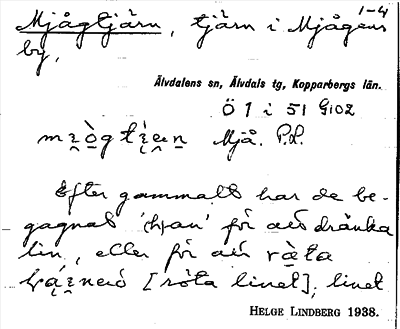 1-4
Mjågtjärn, tjärn i Mjågens
by,
Älvdalens sn, Älvdals tg, Kopparbergs län.
Ö 1 i 51 G102
Mjå. P.L.
Efter gammalt har de be-
gagnat 'tjan' för att dränka
lin, eller för att
[röta linet], linet
HELGE LINDBERG 1938.